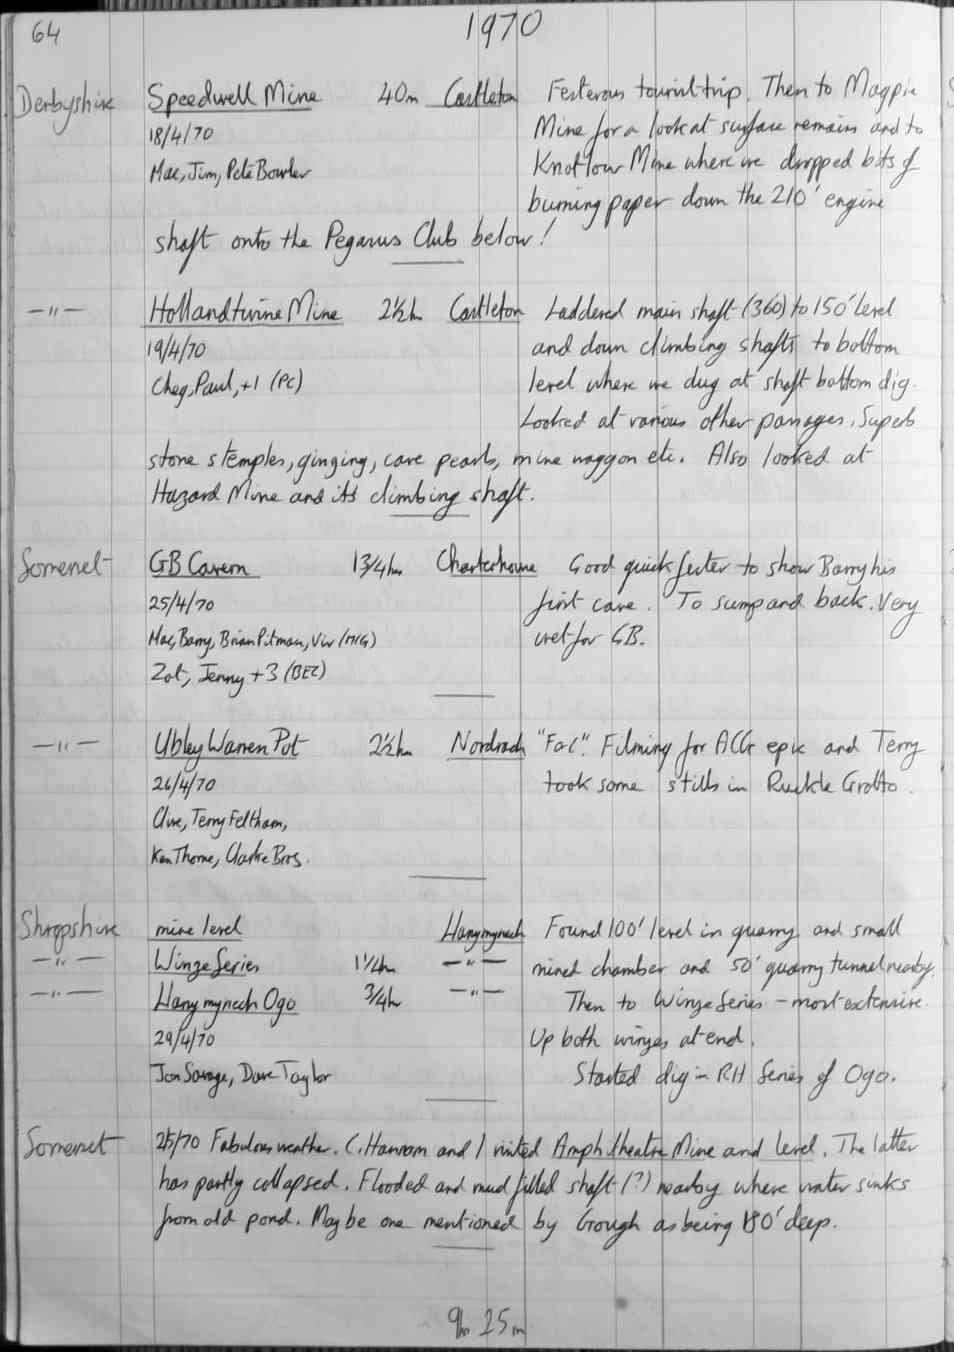 64
1970
Derbyshire Speedwell Mine 40m Castleton Festerous tourist trip. Then to Magpie
18/4/70 Mine for a look at surface remains and to
Mac, Jim, Pete Bowler Knotlow Mine where we dropped bits of
burning paper down the 210' engine
shaft onto the Pegasus Club below!
—"— Hollandtwine Mine 2½h Castleton Laddered main shaft (360) to 150' level
19/4/70 and down climbing shafts to bottom
Cheg, Paul, +1 (PC) level where we dug at shaft bottom dig.
Looked at various other passages. Superb
stone stemples, ginging, cave pearls, mine waggon etc. Also looked at
Hazard Mine and its climbing shaft.
Somerset GB Cavern 1¾hrs Charterhouse Good quick fester to show Barry his
25/4/70 first cave. To sump and back. Very
Mac, Barry, Brian Pitman, Viv (MCG) wet for GB.
Zot, Jenny +3 (BEC)
—"— Ubley Warren Pot 2½hrs Nordrach Filming for ACG epic and Terry
26/4/70 took some stills in Ruckle Grotto.
Clive, Terry Feltham,
Ken Thorne, Clarke Bros.
Shropshire mine level Llanymynech Found 100' level in quarry and small
—"— Winze Series 1¼hr —"— mined chamber and 50' quarry tunnel nearby.
—"— Llanymynech Ogo ¾h —"— Then to Winze Series - most extensive.
29/4/70 Up both winzes at end.
Jon Savage, Dave Taylor Started dig in RH Series of Ogo.
Somerset 2/5/70 Fabulous weather. C. Hawrom and I visited Amphitheatre Mine and level. The latter
has partly collapsed. Flooded and mud filled shaft (?) nearby where water sinks
from old pond. May be one mentioned by Gough as being 180' deep.
9hr 25m